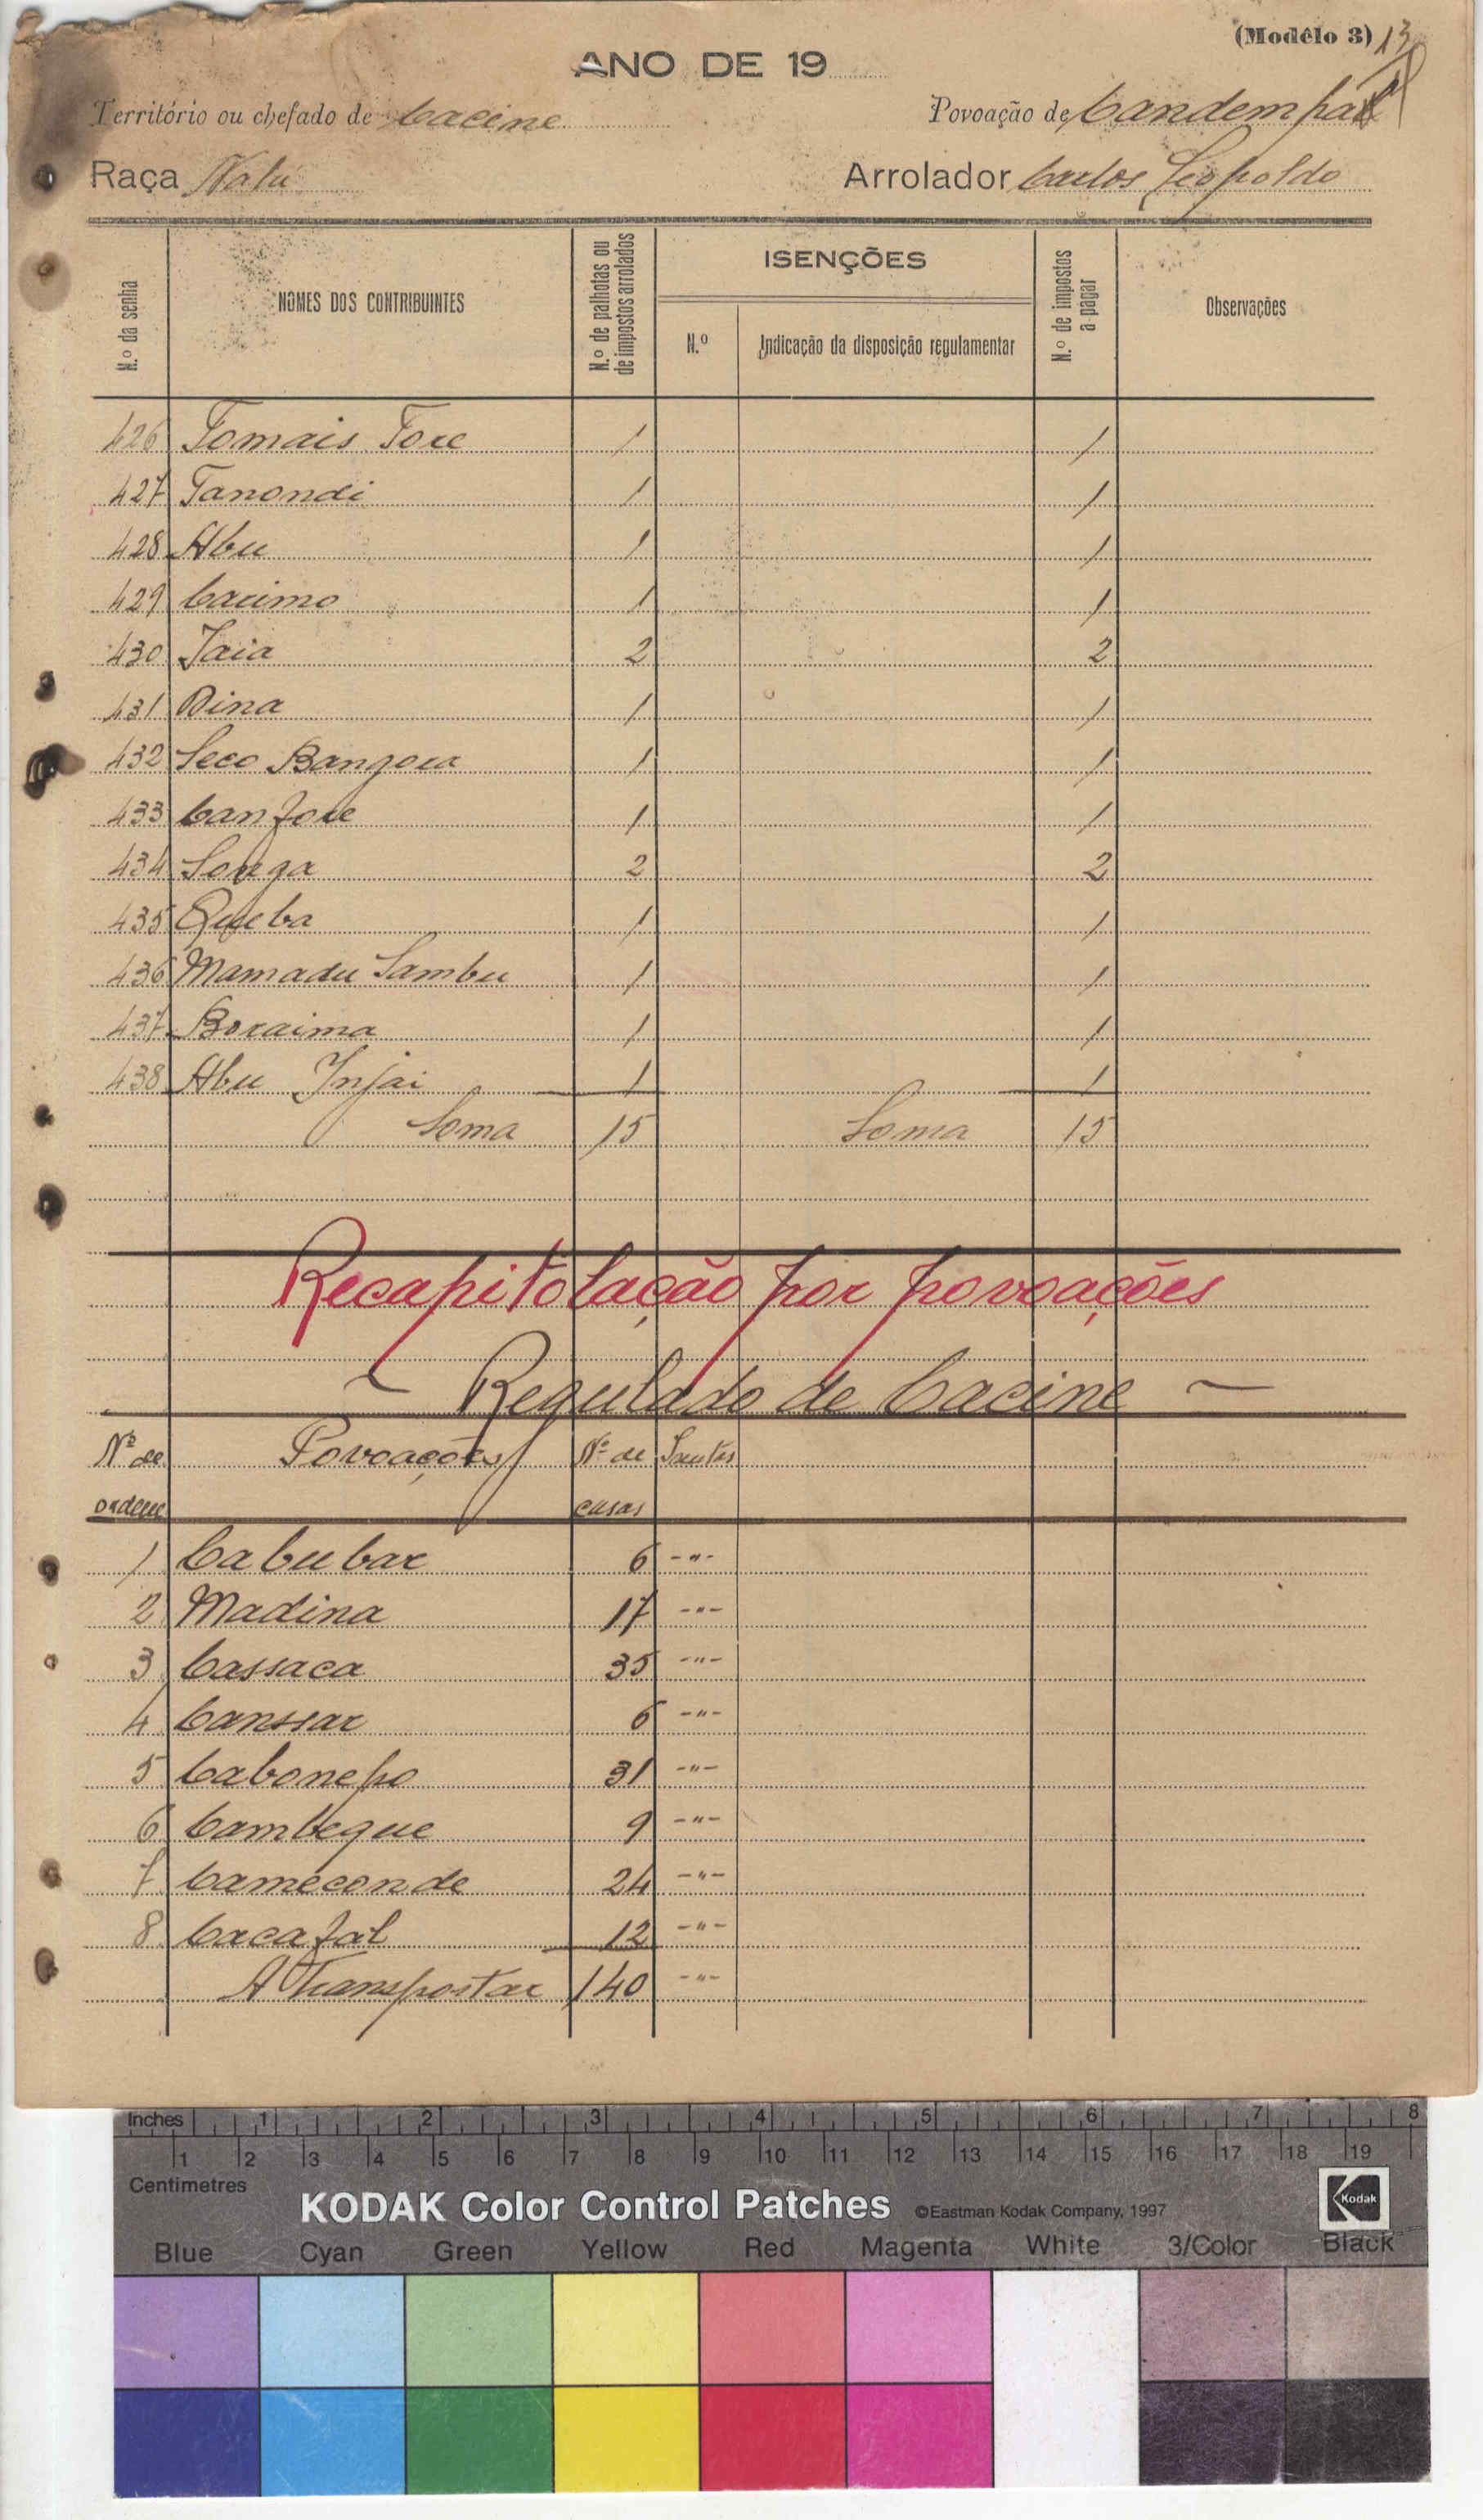 (Modêlo 3) 13
ANO DE 19
Território ou chefado de Cacine Povoação de Candempal
Raça Nalu Arrolador Carlos Leopoldo
N.º da senha NOMES DOS CONTRIBUINTES N.º de palhotas ou de impostos arrolados ISENÇÕES N.º Indicação da disposição regulamentar N.º de impostos a pagar Observações
426 Tomais Tore 1 1
427 Tanondi 1 1
428 Abu 1 1
429 Carimo 1 1
430 Jaia 2 2
431 Dina 1 1
432 Seco Bangora 1 1
433 Canfore 1 1
434 Songa 2 2
435 Queba 1 1
436 Mamadu Sambu 1 1
437 Boraima 1 1
438 Abu Injai 1 1
Soma 15 Soma 15
Recapitolação por povoações
~ Regulado de Cacine ~
Nº de Povoações Nº de
ordem casas
1 Cabubar 6 -"-
2 Madina 17 -"-
3 Cassaca 35 -"-
4 Canssar 6 -"-
5 Cabonepo 31 -"-
6 Cambeque 9 -"-
7 Cameconde 24 -"-
8 Cacafal 12 -"-
A Transportar 140 -"-
Inches 1 2 3 4 5 6 7 8
1 2 3 4 5 6 7 8 9 10 11 12 13 14 15 16 17 18 19
Centimetres
KODAK Color Control Patches ©Eastman Kodak Company, 1997 Kodak
Blue Cyan Green Yellow Red Magenta White 3/Color Black